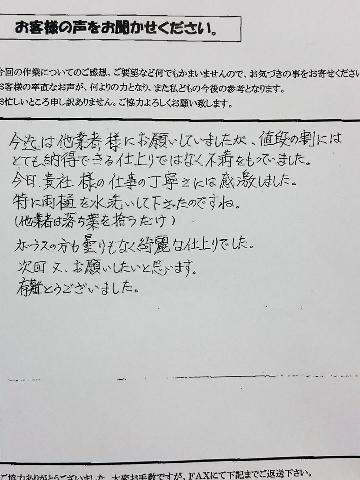 お客様の声をお聞かせください。
今回の作業についてのご感想、ご要望など何でもかまいませんので、お気づきの事をお寄せください
お客様の率直なお声が、何よりの力となり、また私どもの今後の参考となります。
お忙しいところ申し訳ありません。ご協力よろしくお願い致します。
今迄は他業者様にお願いしていましたが、値段の割には
とても納得できる仕上りではなく不満をもっていました。
今日、貴社様の仕事の丁寧さには感激しました。
特に雨樋を水洗いして下さったのですね。
(他業者は落ち葉を拾うだけ)
ガラスの方も曇りもなく綺麗な仕上りでした。
次回又、お願いしたいと思います。
有難とうございました。
ご協力ありがとうございました。大変お手数ですが、FAXにて下記までご返送下さい。